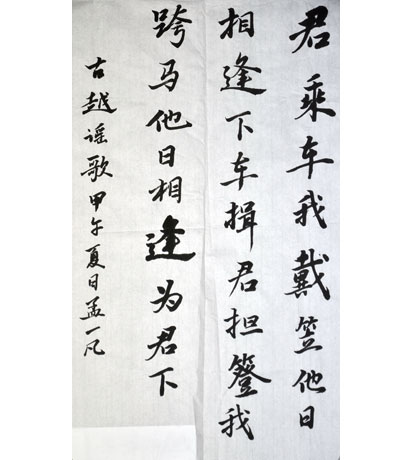 君乘车我戴笠他日
相逢下车揖君担簦我
跨马他日相逢为君下
古越谣歌甲午夏日孟一凡